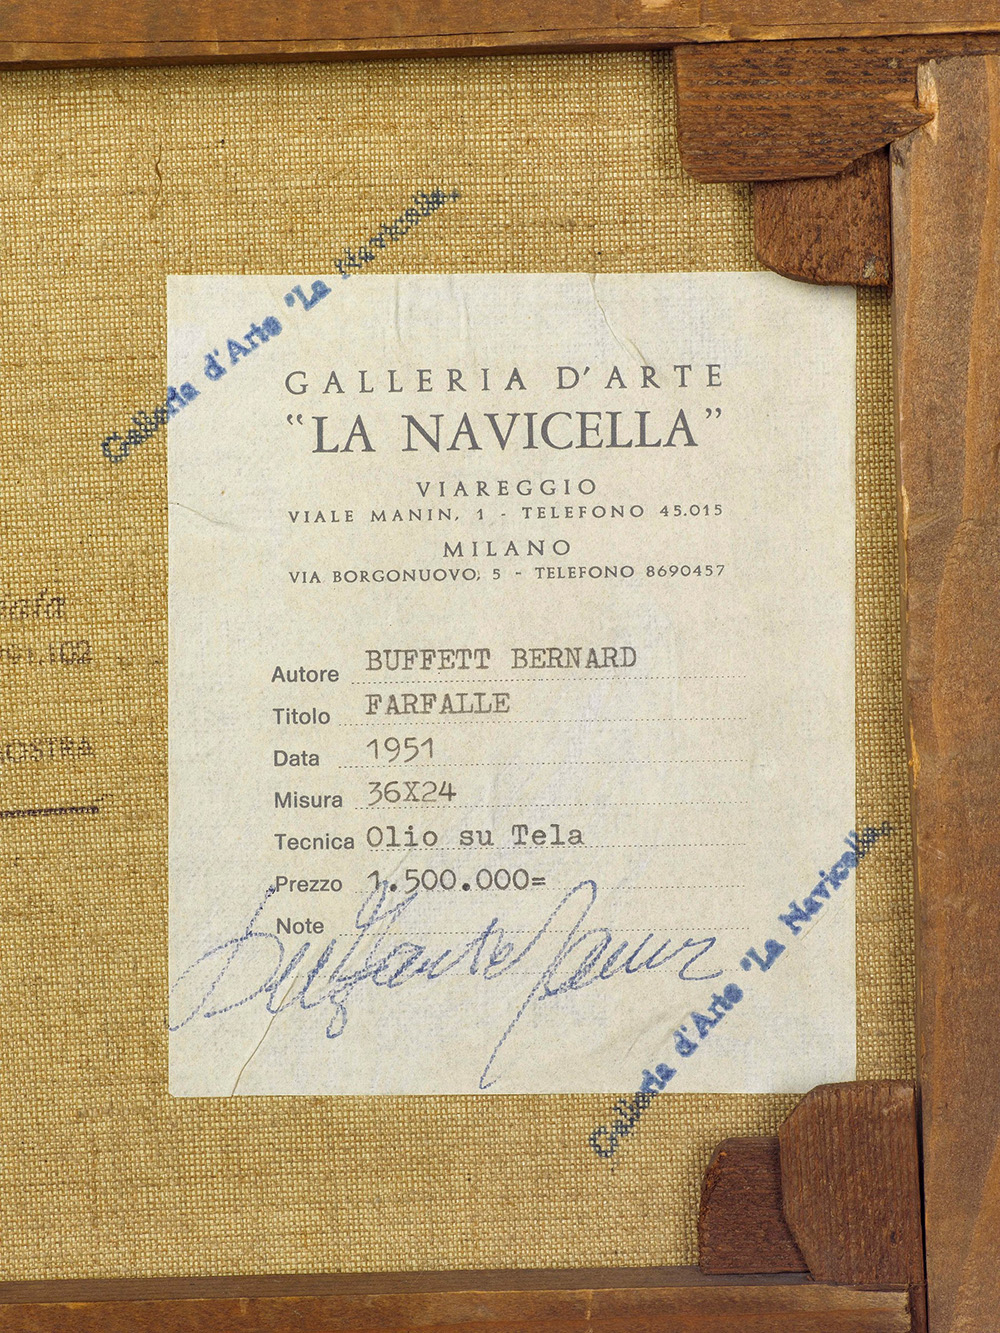 Galleria d'Arte "La Navicella"
GALLERIA D'ARTE
"LA NAVICELLA"
VIAREGGIO
VIALE MANIN, 1 - TELEFONO 45.015
MILANO
VIA BORGONUOVO, 5 - TELEFONO 8690457
Autore BUFFETT BERNARD
Titolo FARFALLE
Data 1951
Misura 36X24
Tecnica Olio su Tela
Prezzo 1.500.000=
Note
Galleria d'Arte "La Navicella"